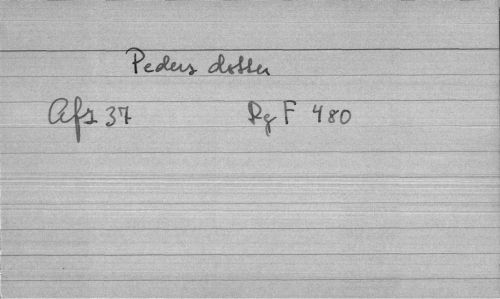 Peders dotter
Afs 37 Rg F 480